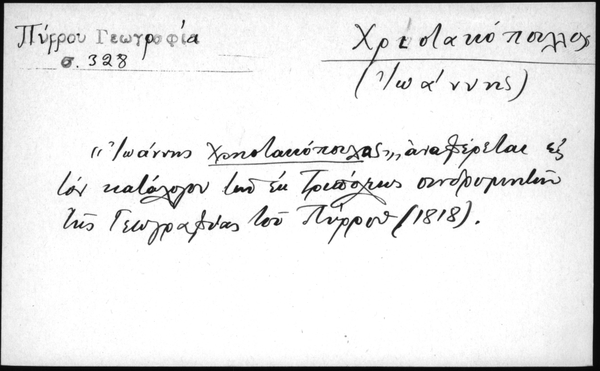 Πύρρου Γεωγραφία
σ. 328
Χριστακόπουλος
(Ἰωάννης)
"Ἰωάννης Χρηστακόπουλος,, ἀναφέρεται εἰς
τὸν κατάλογον τῶν ἐκ Τριπόλεως συνδρομητῶν
τῆς Γεωγραφίας τοῦ Πύρρου (1818).